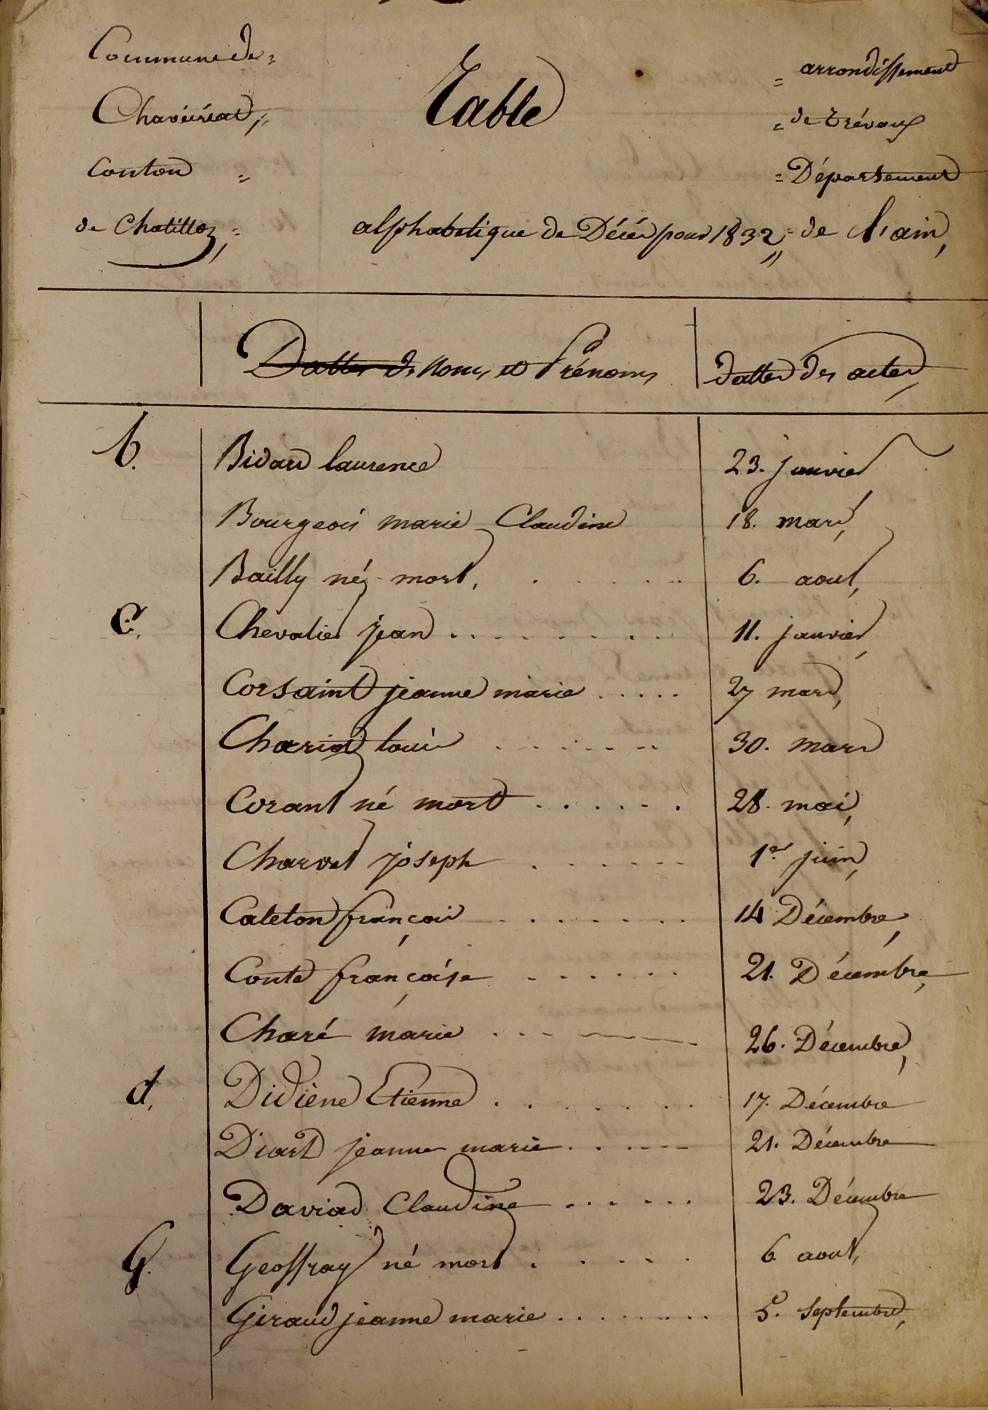 Commune de =
Chaveiriat, =
Canton =
de Chatillon, =
Table
alphabetique de Décés pour 1832,
= arrondissement
= de Trévoux
= Département
= de l'ain,
Dattes de Noms et Prénoms
dattes des actes,
b. Bidard laurence 23. janvier
Bourgeois marie Claudine 18. mars,
Bailly né mort, . . . . . . 6. aout,
C. Chevalier jean . . . . . . . . 11. janvier,
Corsaint jeanne marie . . . . . 27 mars,
Chariat louis . . . . . . . 30. mars
Corant né mort . . . . . . 28. mai,
Charvet joseph . . . . . . . 1er juin,
Cateton françois . . . . . . . 14 Décembre,
Conte françoise . . . . . . 21. Décembre,
Charé marie . . . 26. Décembre,
d. Didiène Etienne . . . . . . . 17. Décembre
Diart jeanne marie . . . . . 21. Décembre
Daviad Claudine . . . . . . 23. Décembre
G. Geoffray né mort . . . . . . 6 aout,
Giraud jeanne marie . . . . . . . . 5. Septembre,